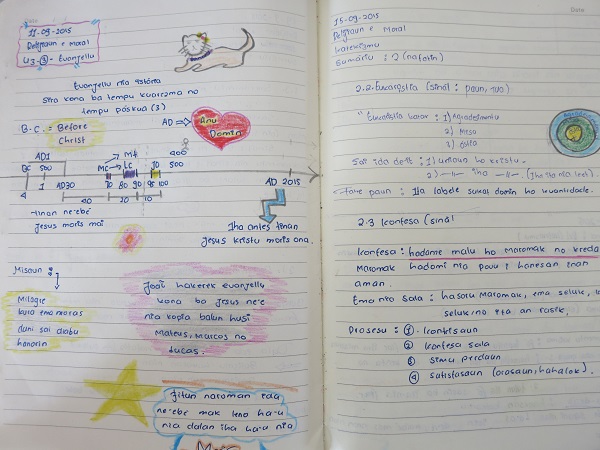 11-09-2015
Religiaun e Moral
U3- ③ - Evanjellu
Evanjellu nia istória
Sira kona ba tempu kuarezma no
tempu páskua (3)
B.C. = Before
Christ
AD ⇒
Anu
Domin
AD1
BC 500
4 1 AD30
MC → Mt
MC LC
400
500
70 80 90 95 100
40 20 10
AD 2015
-tinan ne'ebé
Jesus moris mai
Iha antes tinan
Jesus kristu moris ona.
Misaun :
Milagre
kura ema moras
duni sai diabu
hanorin
Joaó hakerek evanjellu
kona ba Jesus ne'e
nia kopia balun husi
Mateus, Marcos no
Lucas.
fitun naroman ida
ne'ebé mak leno ha-u
nia dalan iha ha-u nia
Date
15-09-2015
Religiaun e Moral
Sumáriu : 2 (nafatin)
2.2 Eucarystia (sinál : paun, tua)
Eucaristia katak : 1) Agradesimentu
2) Meza
3) Óstia
Sai ida de'it : 1) umoun ho kristu.
2) -〃- iha -〃-
fahe paun : Ita labele sukat domin ho kuantidade.
2.3 Konfesa (sinál
Konfesa : hadame malu ho maromak no kreda
Maromak hadomi nia povu hanesan inan
aman.
Ema nia sala : hasoru Maromak, ema seluk,
seluk no ita an rasik.
Prosesu : ①
② konfesa sala
③ simu perdaun
④ satisfasaun (orasaun, hahalok).